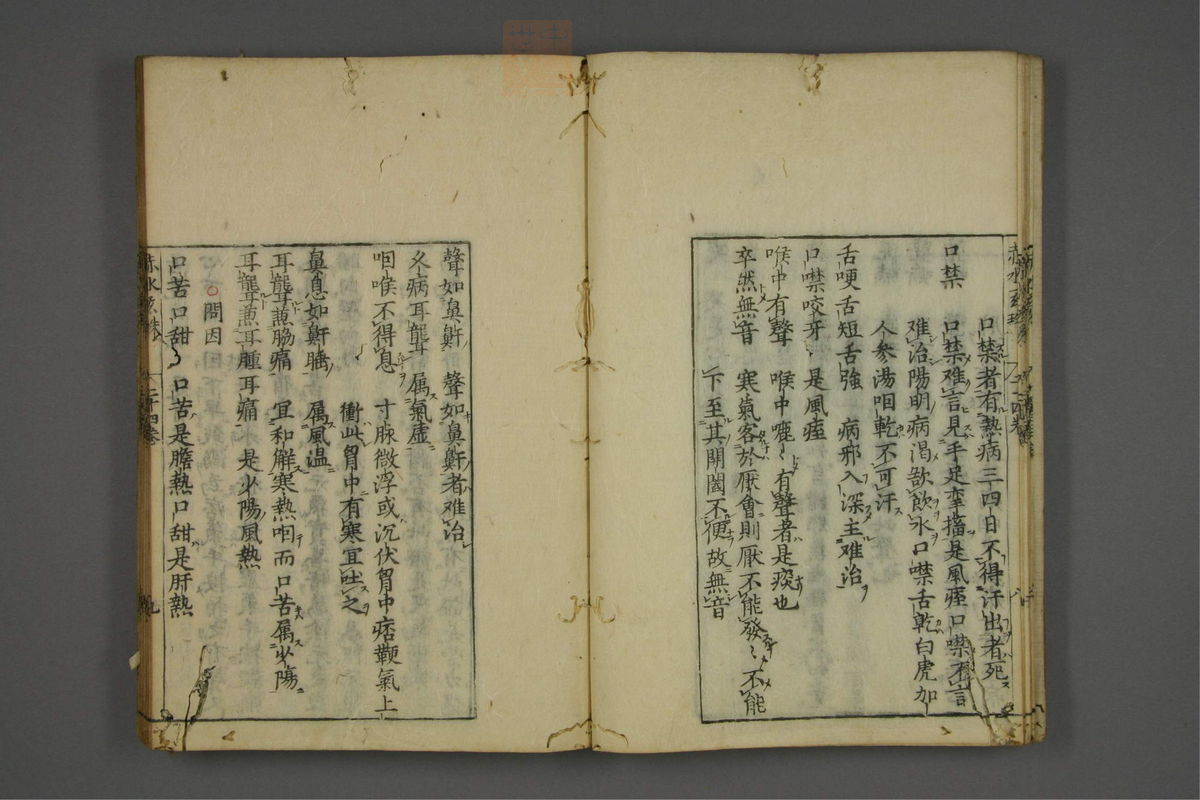 口禁者有熱病三四日不得汗出者死
口禁 口禁难言見手足挛搐是風痓口噤不言
难治陽明病渴欲飲水口噤舌乾白虎加
人参湯咽乾不可汗
舌哽舌短舌強 病邪入深主难治
口噤咬牙 是風痓
喉中有聲 喉中㗭〻有聲者是痰也
卒然無音 寒氣客於厭會則厭不能發〻不能
下至其開闔不便故無音
聲如鼻鼾 聲如鼻鼾者难治
久病耳聾 属氣虚
咽喉不得息 寸脉微浮或沉伏胷中痞鞕氣上
衝此胷中有寒宜吐之
鼻息如鼾睡 属風温
耳聾耳䓇脇痛 宜和解寒熱咽而口苦属少陽
耳聾䓇耳腫耳痛 是少陽風熱
問因
口苦口甜 口苦是膽熱口甜是肝熱
二十四卷
九